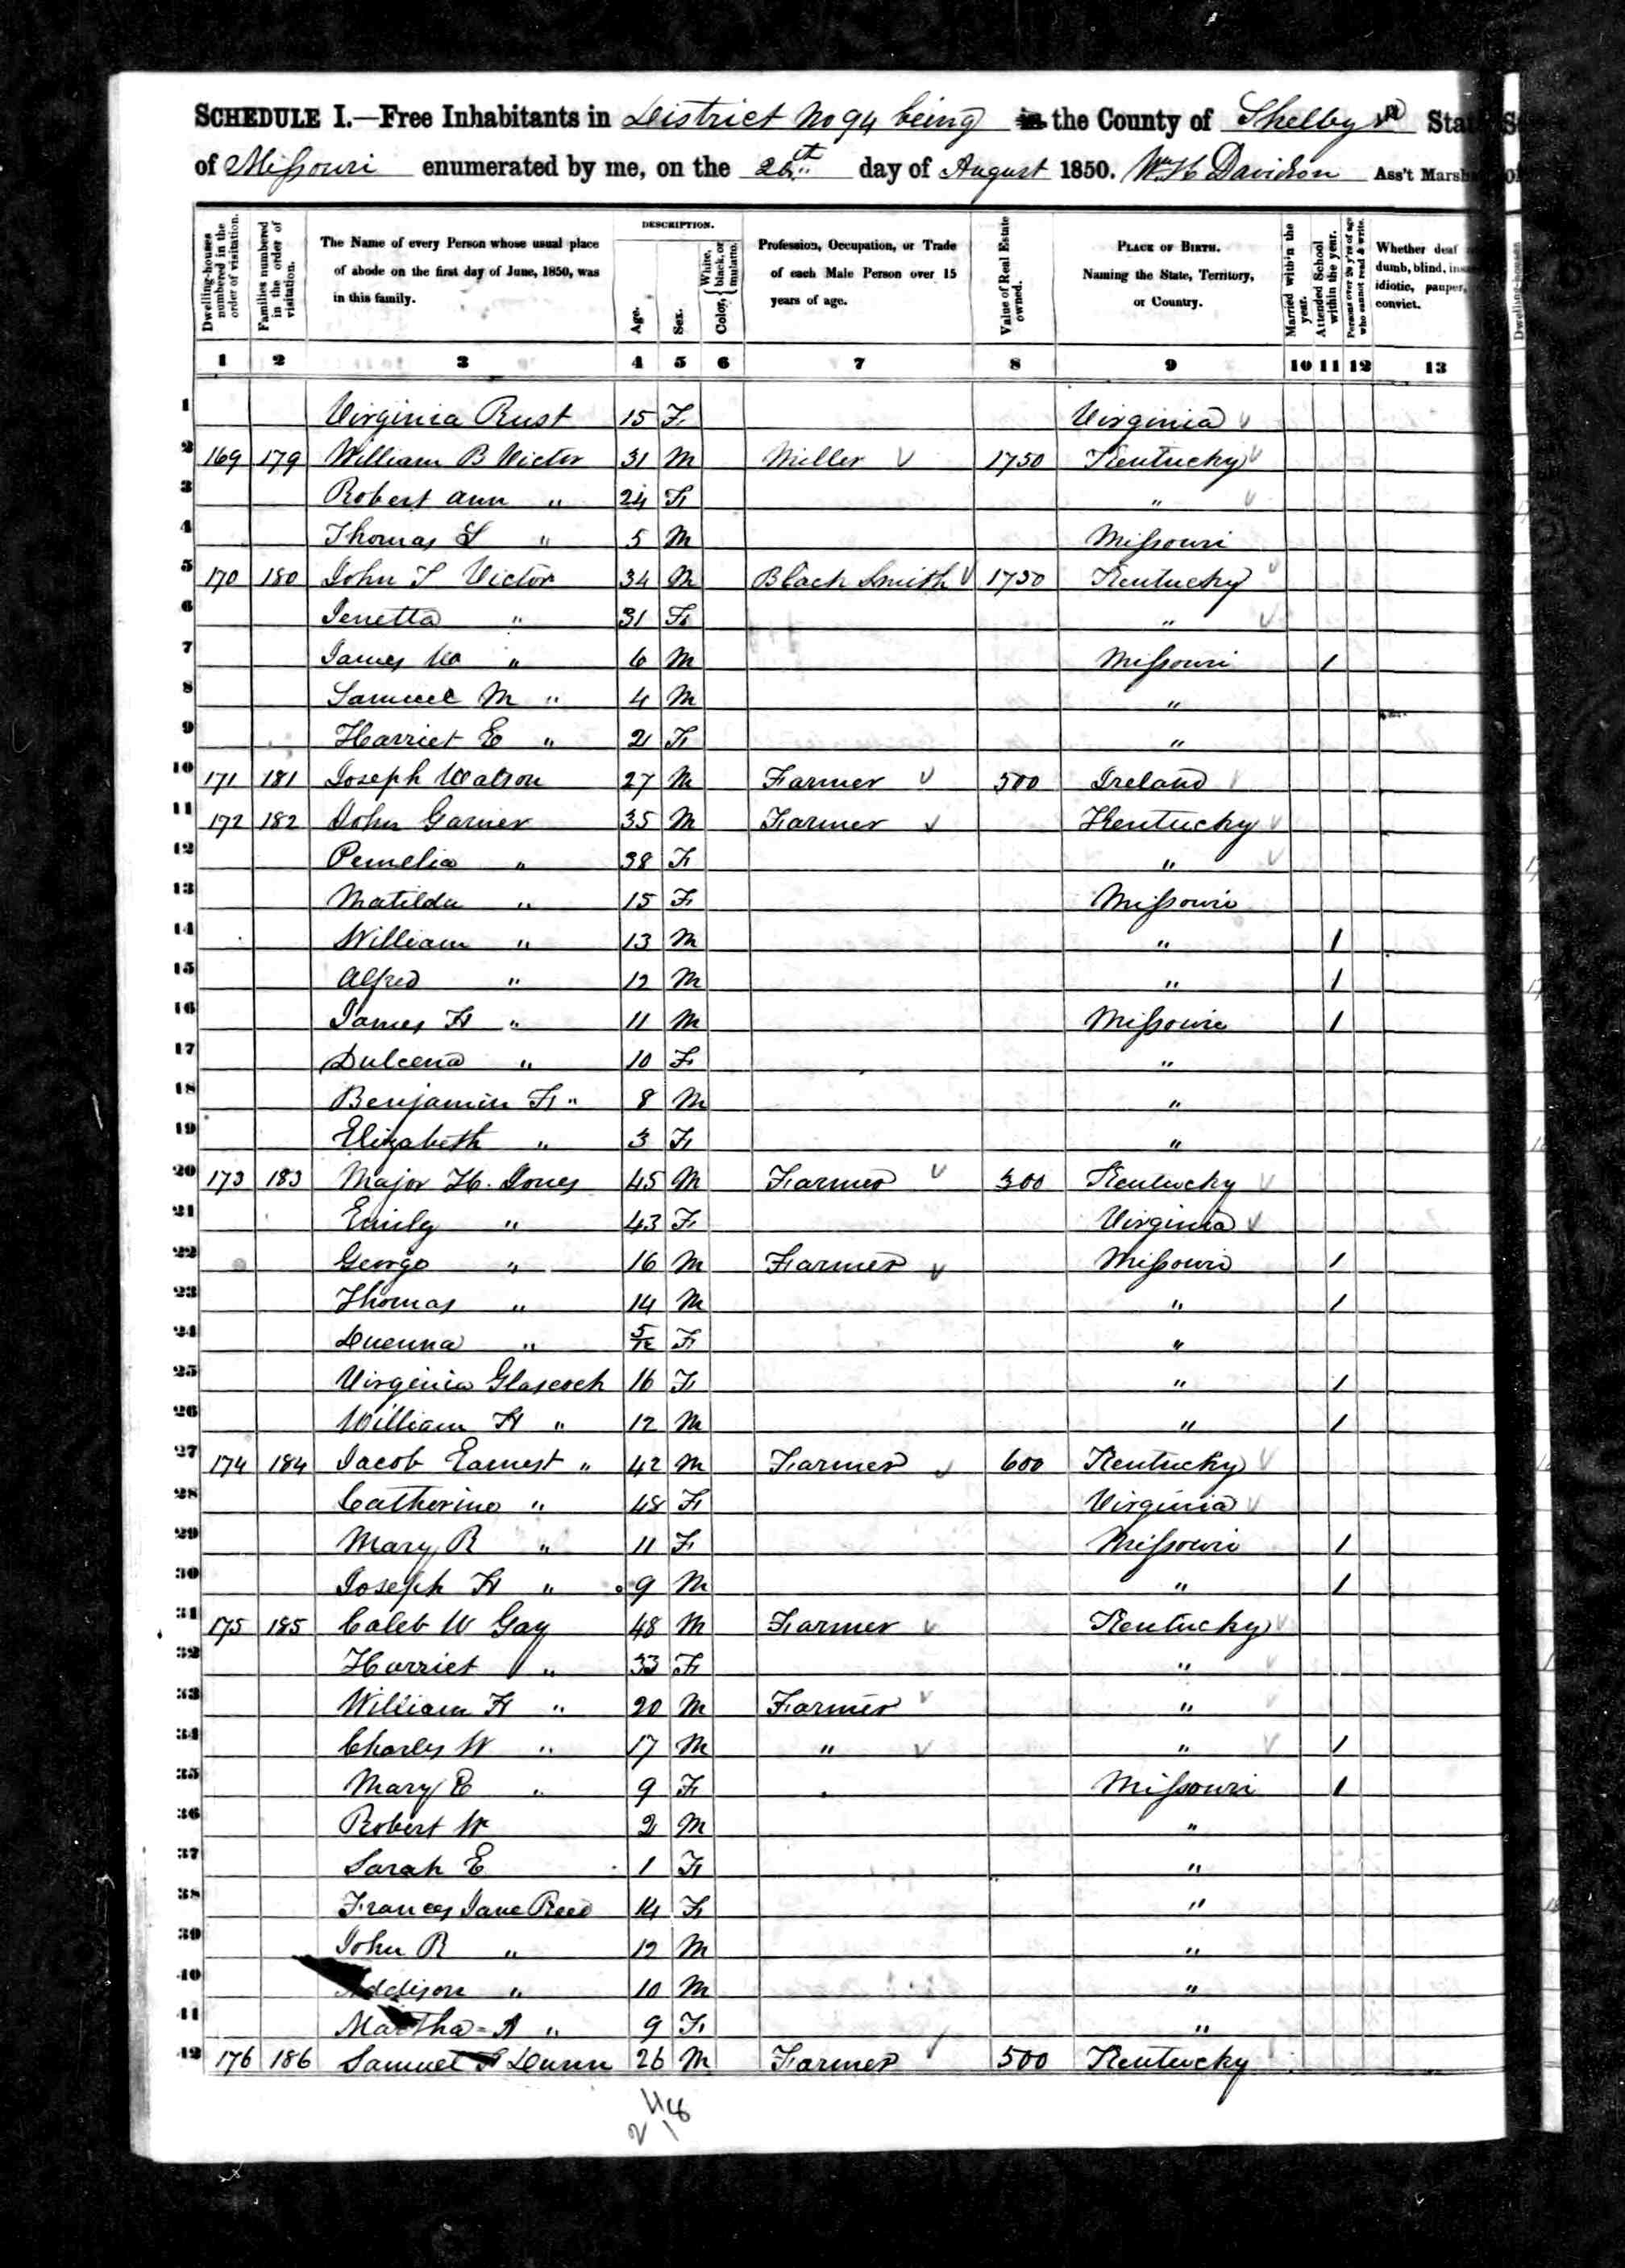 SCHEDULE I.—Free Inhabitants in District No 94 being in the County of Shelby State
of Missouri enumerated by me, on the 26th day of August 1850. Wm H Davidson Ass't Marshal
Dwelling-houses numbered in the order of visitation.
Families numbered in the order of visitation.
The Name of every Person whose usual place of abode on the first day of June, 1850, was in this family.
DESCRIPTION.
Age.
Sex.
Color, { White, black, or mulatto.
Profession, Occupation, or Trade of each Male Person over 15 years of age.
Value of Real Estate owned.
PLACE OF BIRTH. Naming the State, Territory, or Country.
Married within the year.
Attended School within the year.
Persons over 20 y'rs of age who cannot read & write.
Whether deaf dumb, blind, idiotic, pauper, convict.
1 2 3 4 5 6 7 8 9 10 11 12 13
1 Virginia Rust 15 F Virginia
2 169 179 William B Victor 31 M Miller 1750 Kentucky
3 Robert ann " 24 F "
4 Thomas L " 5 M Missouri
5 170 180 John S Victor 34 M Black Smith 1750 Kentucky
6 Jenetta " 31 F "
7 James W " 6 M Missouri 1
8 Samuel M " 4 M "
9 Harriet E " 2 F "
10 171 181 Joseph Watson 27 M Farmer 500 Ireland
11 172 182 John Garner 35 M Farmer Kentucky
12 Pemelia " 38 F "
13 Matilda " 15 F Missouri
14 William " 13 M " 1
15 Alfred " 12 M " 1
16 James H " 11 M Missouri 1
17 Dulcena " 10 F "
18 Benjamin F " 8 M "
19 Elizabeth " 3 F "
20 173 183 Major H. Jones 45 M Farmer 300 Kentucky
21 Emily " 43 F Virginia
22 George " 16 M Farmer Missouri 1
23 Thomas " 14 M " 1
24 Luenna " 5/12 F "
25 Virginia Glascock 16 F " 1
26 William H " 12 M " 1
27 174 184 Jacob Earnest " 42 M Farmer 600 Kentucky
28 Catherine " 48 F Virginia
29 Mary R " 11 F Missouri 1
30 Joseph H " 9 M " 1
31 175 185 Caleb W Gay 48 M Farmer Kentucky
32 Harriet " 33 F "
33 William H " 20 M Farmer "
34 Charles W " 17 M " " 1
35 Mary E " 9 F Missouri 1
36 Robert W 2 M "
37 Sarah E 1 F "
38 Frances Jane Reed 14 F "
39 John R " 12 M "
40 Addison " 10 M "
41 Martha A " 9 F "
42 176 186 Samuel Dunn 26 M Farmer 500 Kentucky